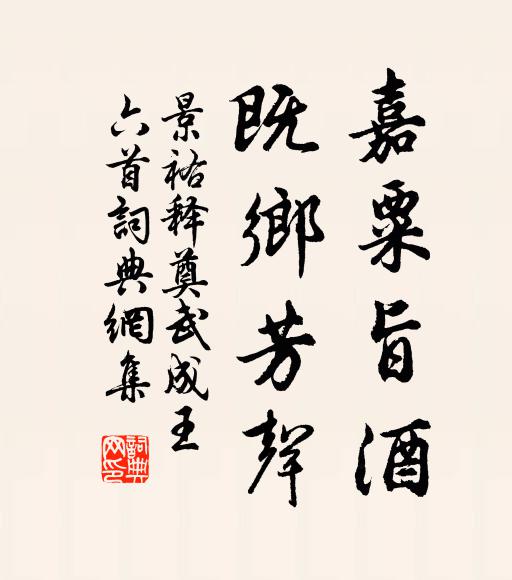 嘉粟旨酒
既鄉芳聲
景祐释奠武成王
六首詞典網集
詞典网印